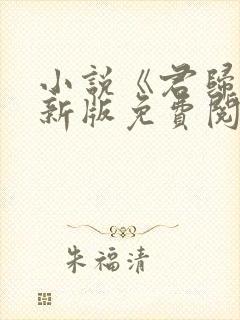 小説《君歸
新版免費閱
朱福清